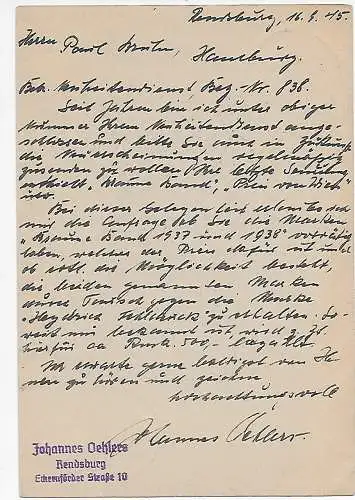 Rendsburg, 16.9.45.
Herrn Paul
Hamburg.
Betr. Neuheitendienst, Bez.-Nr. 838.
Seit Jahren bin ich unter obiger
Nummer Ihrem Neuheitendienst ange-
schlossen und bitte Sie auch in Zukunft
die Neuerscheinungen regelmäßig
zusenden zu wollen. Ihre letzte Sendung
enthielt „Braune Band",
usw.
Bei dieser Gelegenheit erlaube ich
mir die Anfrage, ob Sie die Marken
„Braune Band 1937 und 1938" vorrätig
haben, welches der Preis dafür ist und
ob evtl. die Möglichkeit besteht,
die beiden genannten Marken
durch Tausch gegen die Marke
„Heydrich Block" zu erhalten. So-
weit mir bekannt ist, wird z. Zt.
hierfür ca Rmk. 500,- bezahlt.
Ich würde gerne baldigst von Ih-
nen zu hören und zeichne
hochachtungsvoll
Johannes Oehlers.
Johannes Oehlers
Rendsburg
Eckernförder Straße 10